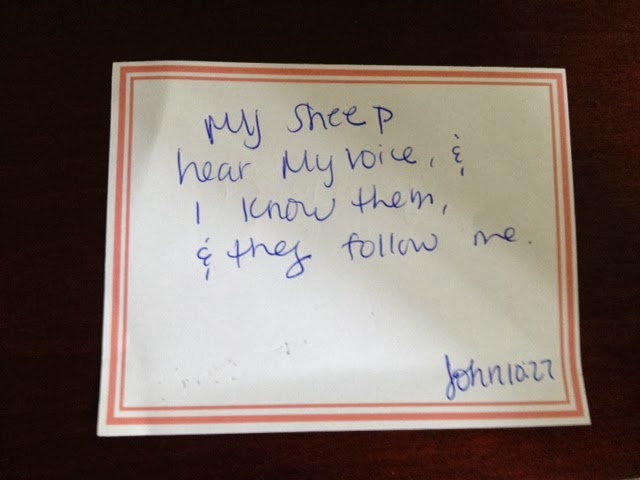 My sheep
hear My voice, &
I know them,
& they follow me.
John 10:27